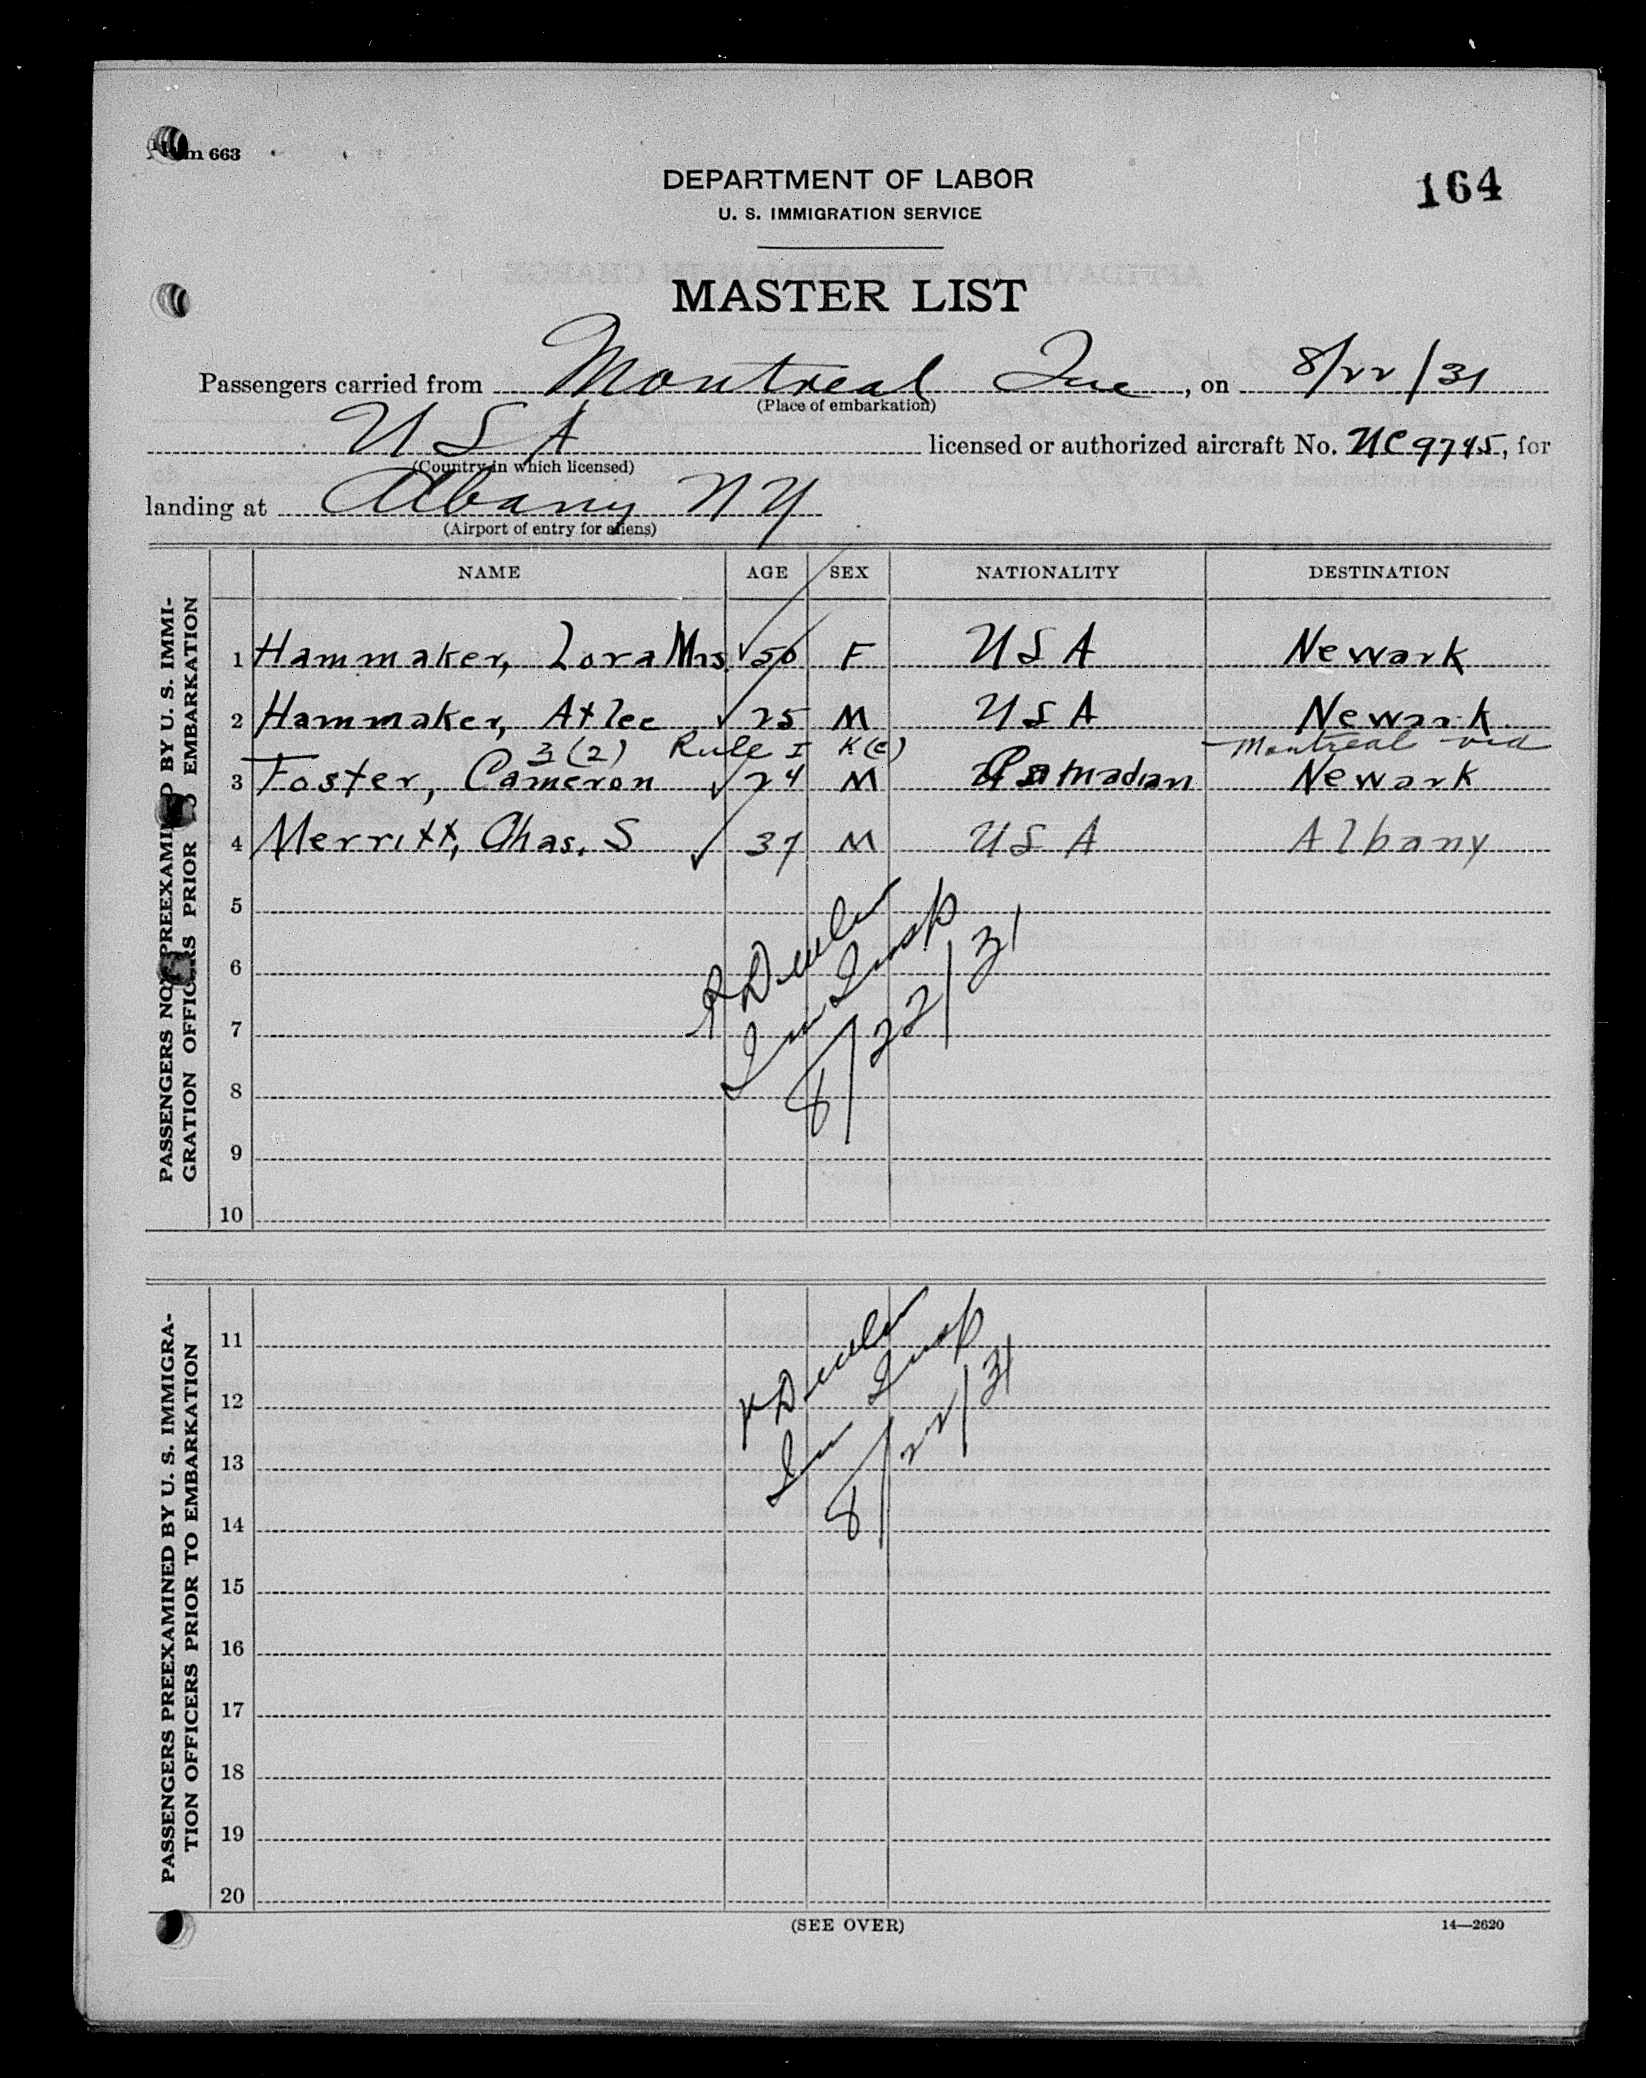 Form 663
DEPARTMENT OF LABOR
164
U. S. IMMIGRATION SERVICE
MASTER LIST
Passengers carried from Montreal Que, on 8/22/31
(Place of embarkation)
USA licensed or authorized aircraft No. NC9745, for
(Country in which licensed)
landing at Albany NY
(Airport of entry for aliens)
PASSENGERS NOT PREEXAMINED BY U. S. IMMI-
GRATION OFFICERS PRIOR TO EMBARKATION
NAME AGE SEX NATIONALITY DESTINATION
1 Hammaker, Lora Mrs. ✓ 50 F USA Newark
2 Hammaker, Atlee ✓ 25 M USA Newark
3(2) Rule I K(e) Montreal via
3 Foster, Cameron ✓ 24 M Canadian Newark
4 Merritt, Chas. S ✓ 37 M USA Albany
5
6
7
8
9
10
Im Insp
8/22/31
PASSENGERS PREEXAMINED BY U. S. IMMIGRA-
TION OFFICERS PRIOR TO EMBARKATION
11
12
13
14
15
16
17
18
19
20
Im Insp
8/22/31
(SEE OVER)
14—2620